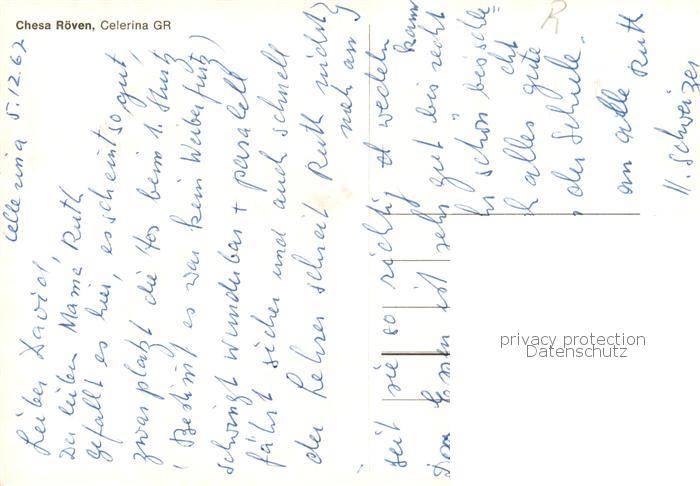 Chesa Röven, Celerina GR
Cellerina 5.12.62
Lieber David,
Der lieben Mama Ruth
gefällt es hier, es scheint so gut,
zwar platzt die Hos beim 1. Sturz
(Bestimt es war kein Weiberfurz)
schwingt wunderbar + paralell
fährt sicher und auch schnell
der Lehrer schreit Ruth nicht
noch an
seit sie so richtig wedeln kann
Das Essen ist sehr gut bis recht
schön bissche
cht
alles gute
der Schule.
an alle Ruth
H. Schweizer
privacy protection
Datenschutz